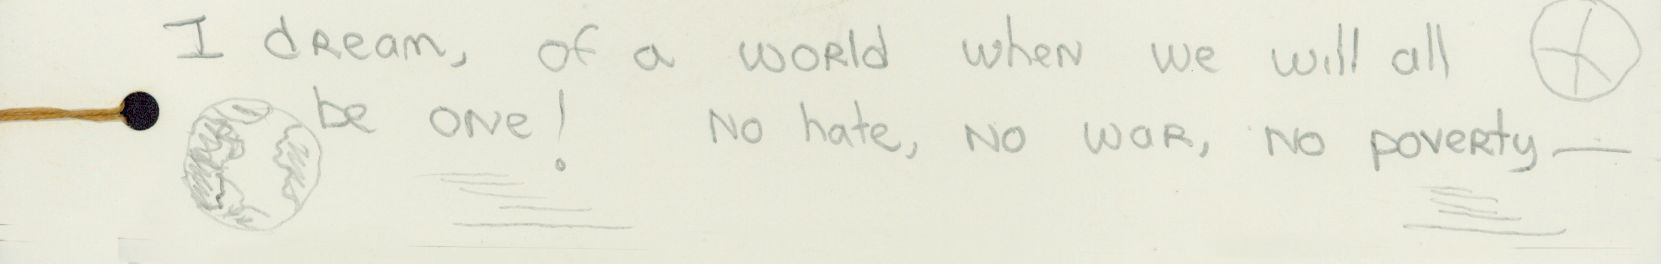 I dream, of a world when we will all
be one! No hate, no war, no poverty—